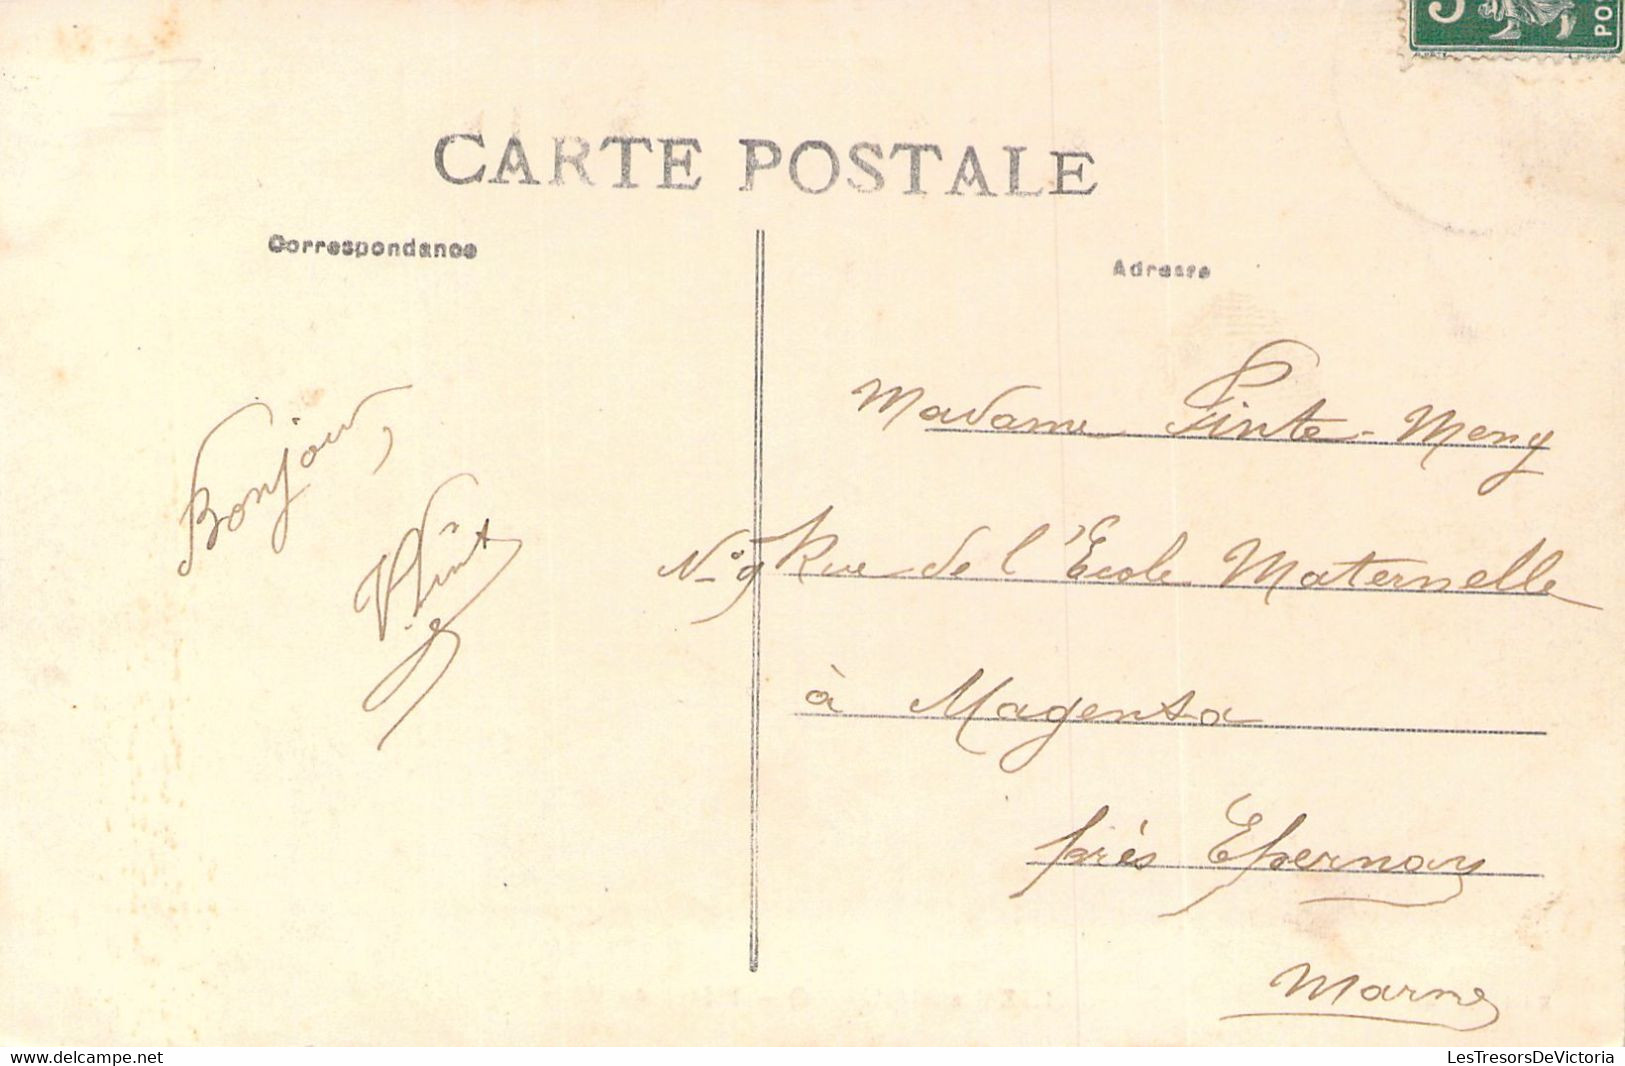 5
POS
CARTE POSTALE
Correspondance
Adresse
Bonjour,
Madame Pinte-Meny
N° 9 Rue de l'Ecole Maternelle
à Magenta
près Epernay
Marne
www.delcampe.net
LesTresorsDeVictoria